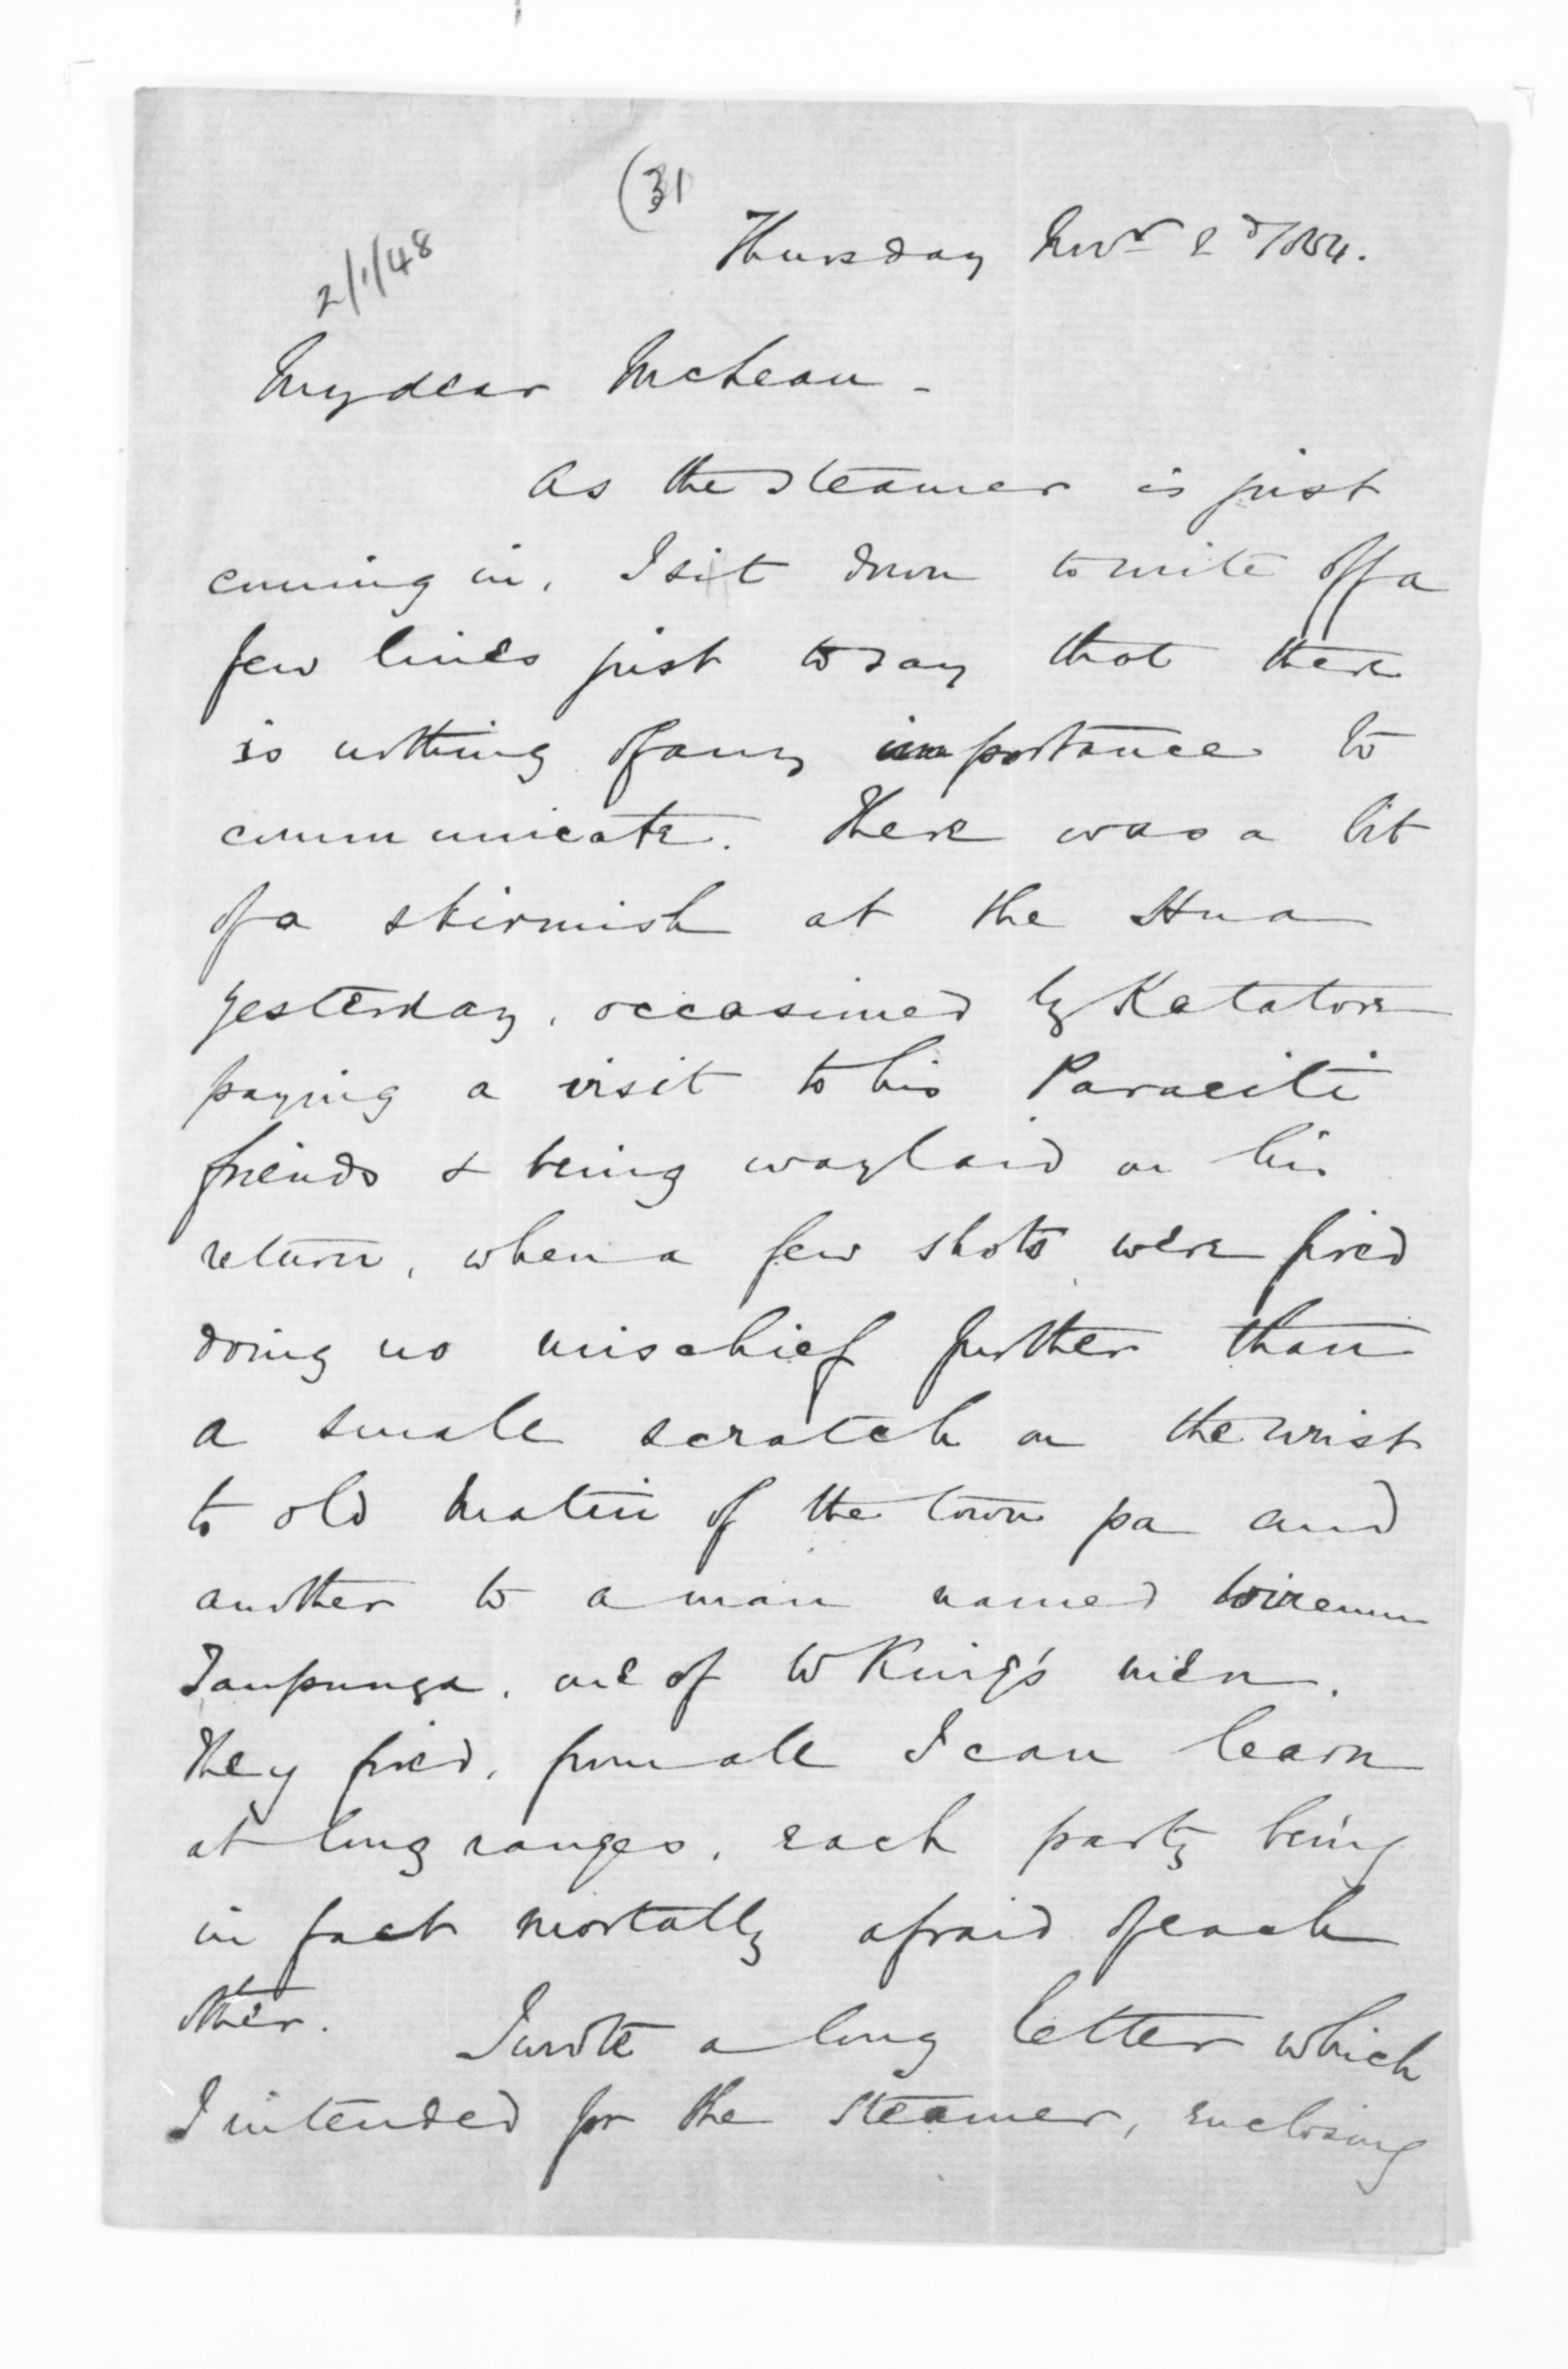 (31
Thursday Novr 2d/1854.
2/1/48
My dear McLean -
As the steamer is just
coming in, I sit down to write off a
few lines just to say that there
is nothing of any importance to
communicate. There was a bit
of a skirmish at the Hua
yesterday, occasioned by Katatore
paying a visit to his Paraeiti
friends & being waylaid on his
return, when a few shots were fired
doing no mischief further than
a small scratch on the wrist
to old Matiu of the town pa and
another to a man named Wiremu
Taupunga, one of W King's men.
They fired, from all I can learn
at long ranges, each party being
in fact mortally afraid of each
other. I wrote a long letter which
I intended for the steamer, enclosing